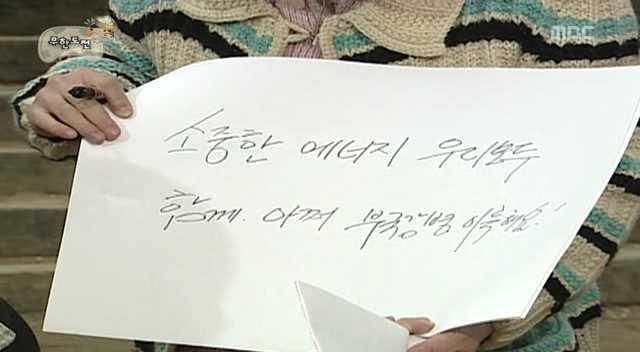 무한도전
MBC
소중한 에너지 우리모두
함께 아껴 부국강병 이룩해요!